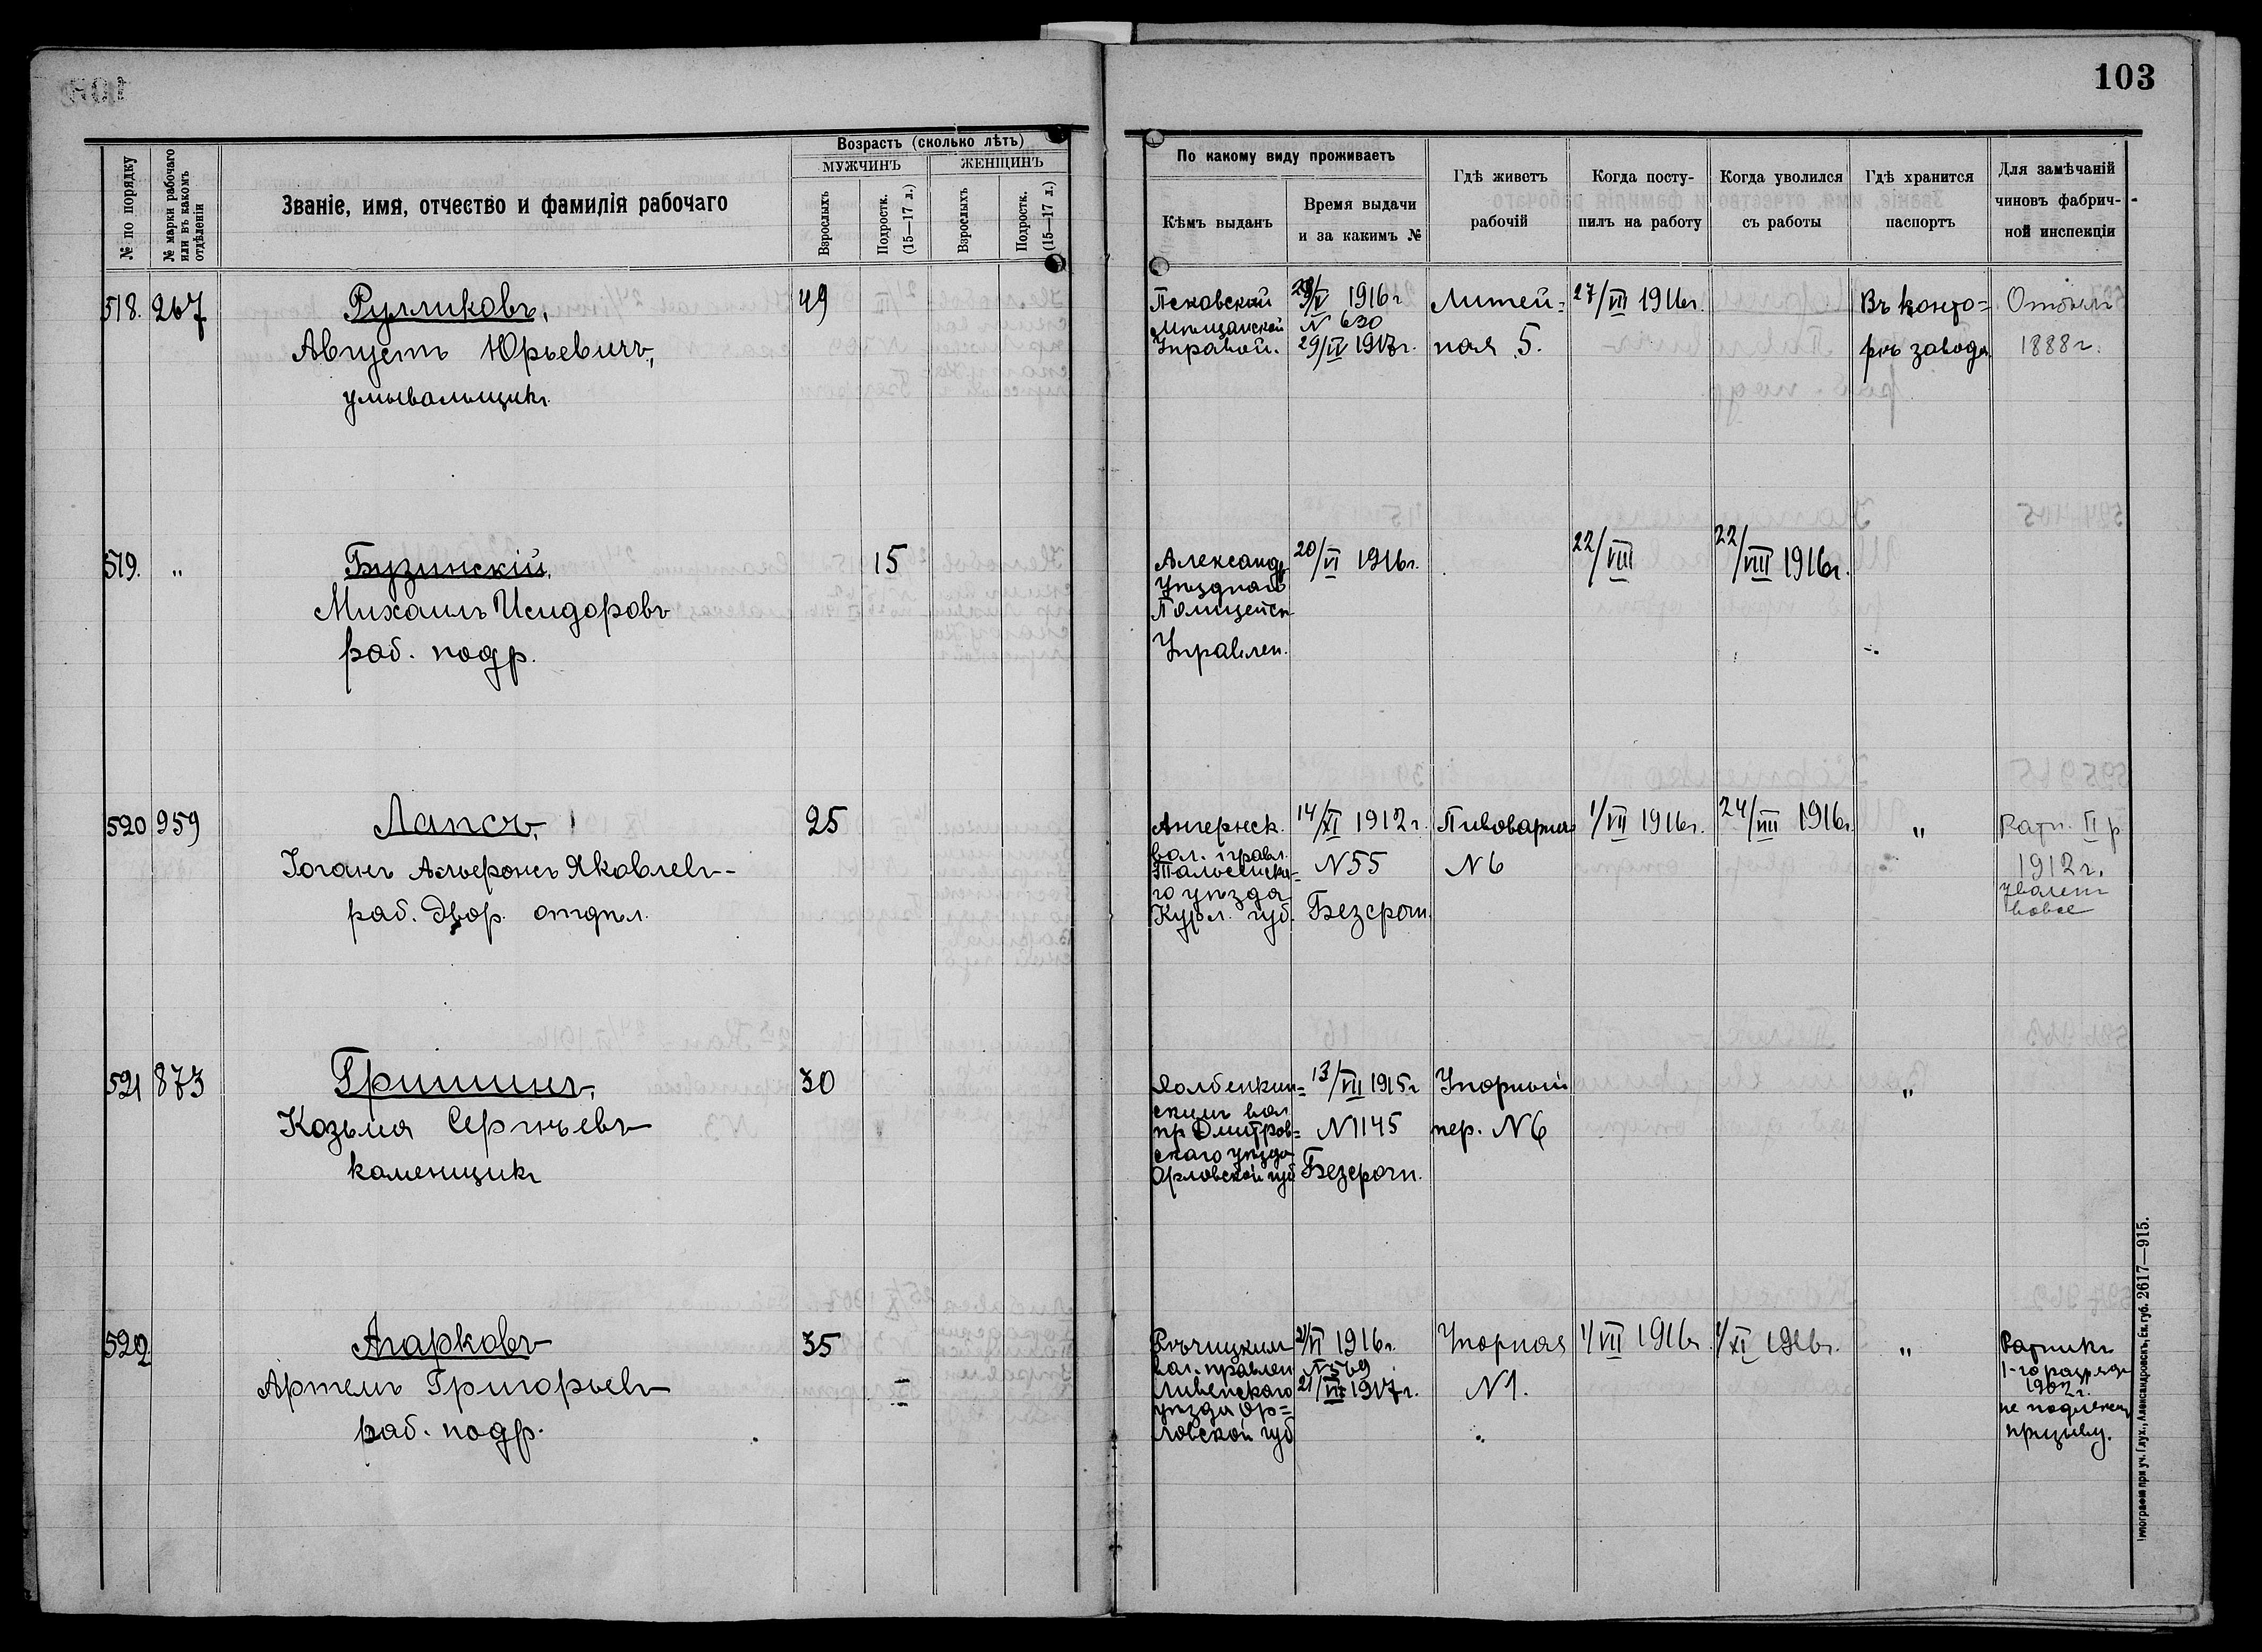 103
№ по порядку
№ марки рабочаго или въ какомъ отдѣленіи
Званіе, имя, отчество и фамилія рабочаго
Возрастъ (сколько лѣтъ)
МУЖЧИНЪ
ЖЕНЩИНЪ
Взрослыхъ
Подростк. (15—17 л.)
Взрослыхъ
Подростк. (15—17 л.)
По какому виду проживаетъ
Кѣмъ выданъ
Время выдачи и за какимъ №
Гдѣ живетъ рабочій
Когда поступилъ на работу
Когда уволился съ работы
Гдѣ хранится паспортъ
Для замѣчаній чиновъ фабричной инспекціи
518. 267
Рулликовъ,
Августъ Юрьевичъ,
умывальщикъ
49
Псковской
Мѣщанской
Управой.
29/IV 1916 г
N 630
29/IV 1917 г.
Литей=
ная 5.
27/VII 1916 г.
Въ конто=
рѣ завода
Отбылъ
1888 г.
519. "
Бузинскій,
Михаилъ Исидоровъ
раб. подр.
15
Александр
Уѣздной
Полицейск
Управлен.
20/VI 1916 г.
22/VIII
22/VIII 1916 г.
520 959
Лапсъ,
Іоганъ Яковлевъ
раб. двор. отдѣл.
25
Ангернск.
вол. правл.
Тальсенска=
го уѣзда
Курл. губ.
14/XI 1912 г.
N 55
Безсрочн.
Пивоварная
N 6
1/VII 1916 г.
24/VIII 1916 г.
"
Ратн. II р
1912 г.
521 873
Гришинъ,
Козьма Сергѣевъ
каменщикъ
30
скимъ вол
пр Дмитров=
скаго уѣзда
Орловской губ
13/VII 1915 г
N 1145
Безсрочн.
Упорный
пер. N 6
"
522
Агарковъ
Артемъ Григорьевъ
раб. подр.
35
Рѣчицкимъ
вол. правлен
Ливенскаго
уѣзда Ор=
ловской губ
21/VI 1916 г.
N 569
21/VI 1917 г.
Упорная
N 1.
1/VII 1916 г.
1/XI 1916 г.
"
Ратникъ
1-го разряда
1902 г.
не подлежит
призыву.
Типографія при уч. Глух., Александровскъ, Ек. губ. 2617—915.